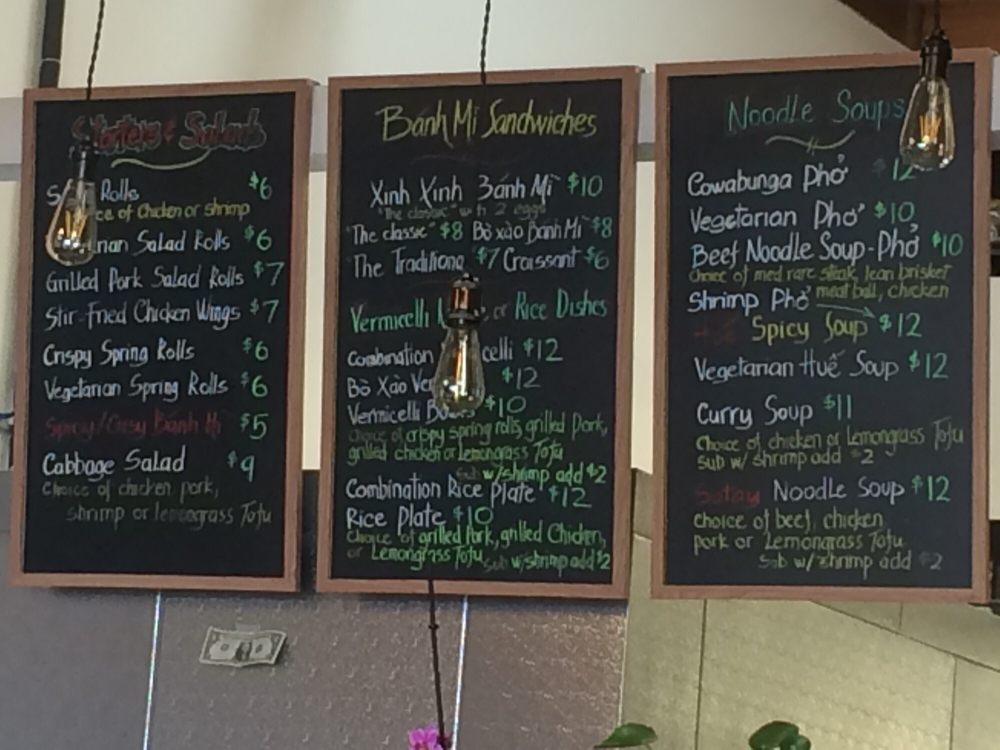 Starters & Salads
Rolls $6
Chicken or shrimp
Salad Rolls $6
Grilled Pork Salad Rolls $7
Stir-Fried Chicken Wings $7
Crispy Spring Rolls $6
Vegetarian Spring Rolls $6
Bánh Mì $5
Cabbage Salad $9
choice of chicken, pork,
shrimp or lemongrass Tofu
Bánh Mì Sandwiches
Xinh Xinh Bánh Mì $10
"The classic" with 2 eggs
"The classic" $8 Bò xào Bánh Mì $8
The Traditional $7 Croissant $6
Vermicelli or Rice Dishes
Combination $12
Bò Xào $12
Vermicelli $10
choice of crispy spring rolls, grilled Pork,
grilled chicken or lemongrass Tofu
Sub w/shrimp add $2
Combination Rice Plate $12
Rice Plate $10
choice of grilled Pork, grilled Chicken,
or Lemongrass Tofu Sub w/shrimp add $2
Noodle Soups
Cowabunga Phở $12
Vegetarian Phở $10
Beef Noodle Soup - Phở $10
choice of med rare steak, lean brisket
meat ball, chicken
Shrimp Phở
Spicy Soup $12
Vegetarian Huế Soup $12
Curry Soup $11
Choice of chicken or Lemongrass Tofu
Sub w/ shrimp add $2
Satay Noodle Soup $12
choice of beef, chicken
pork or Lemongrass Tofu
Sub w/ shrimp add $2